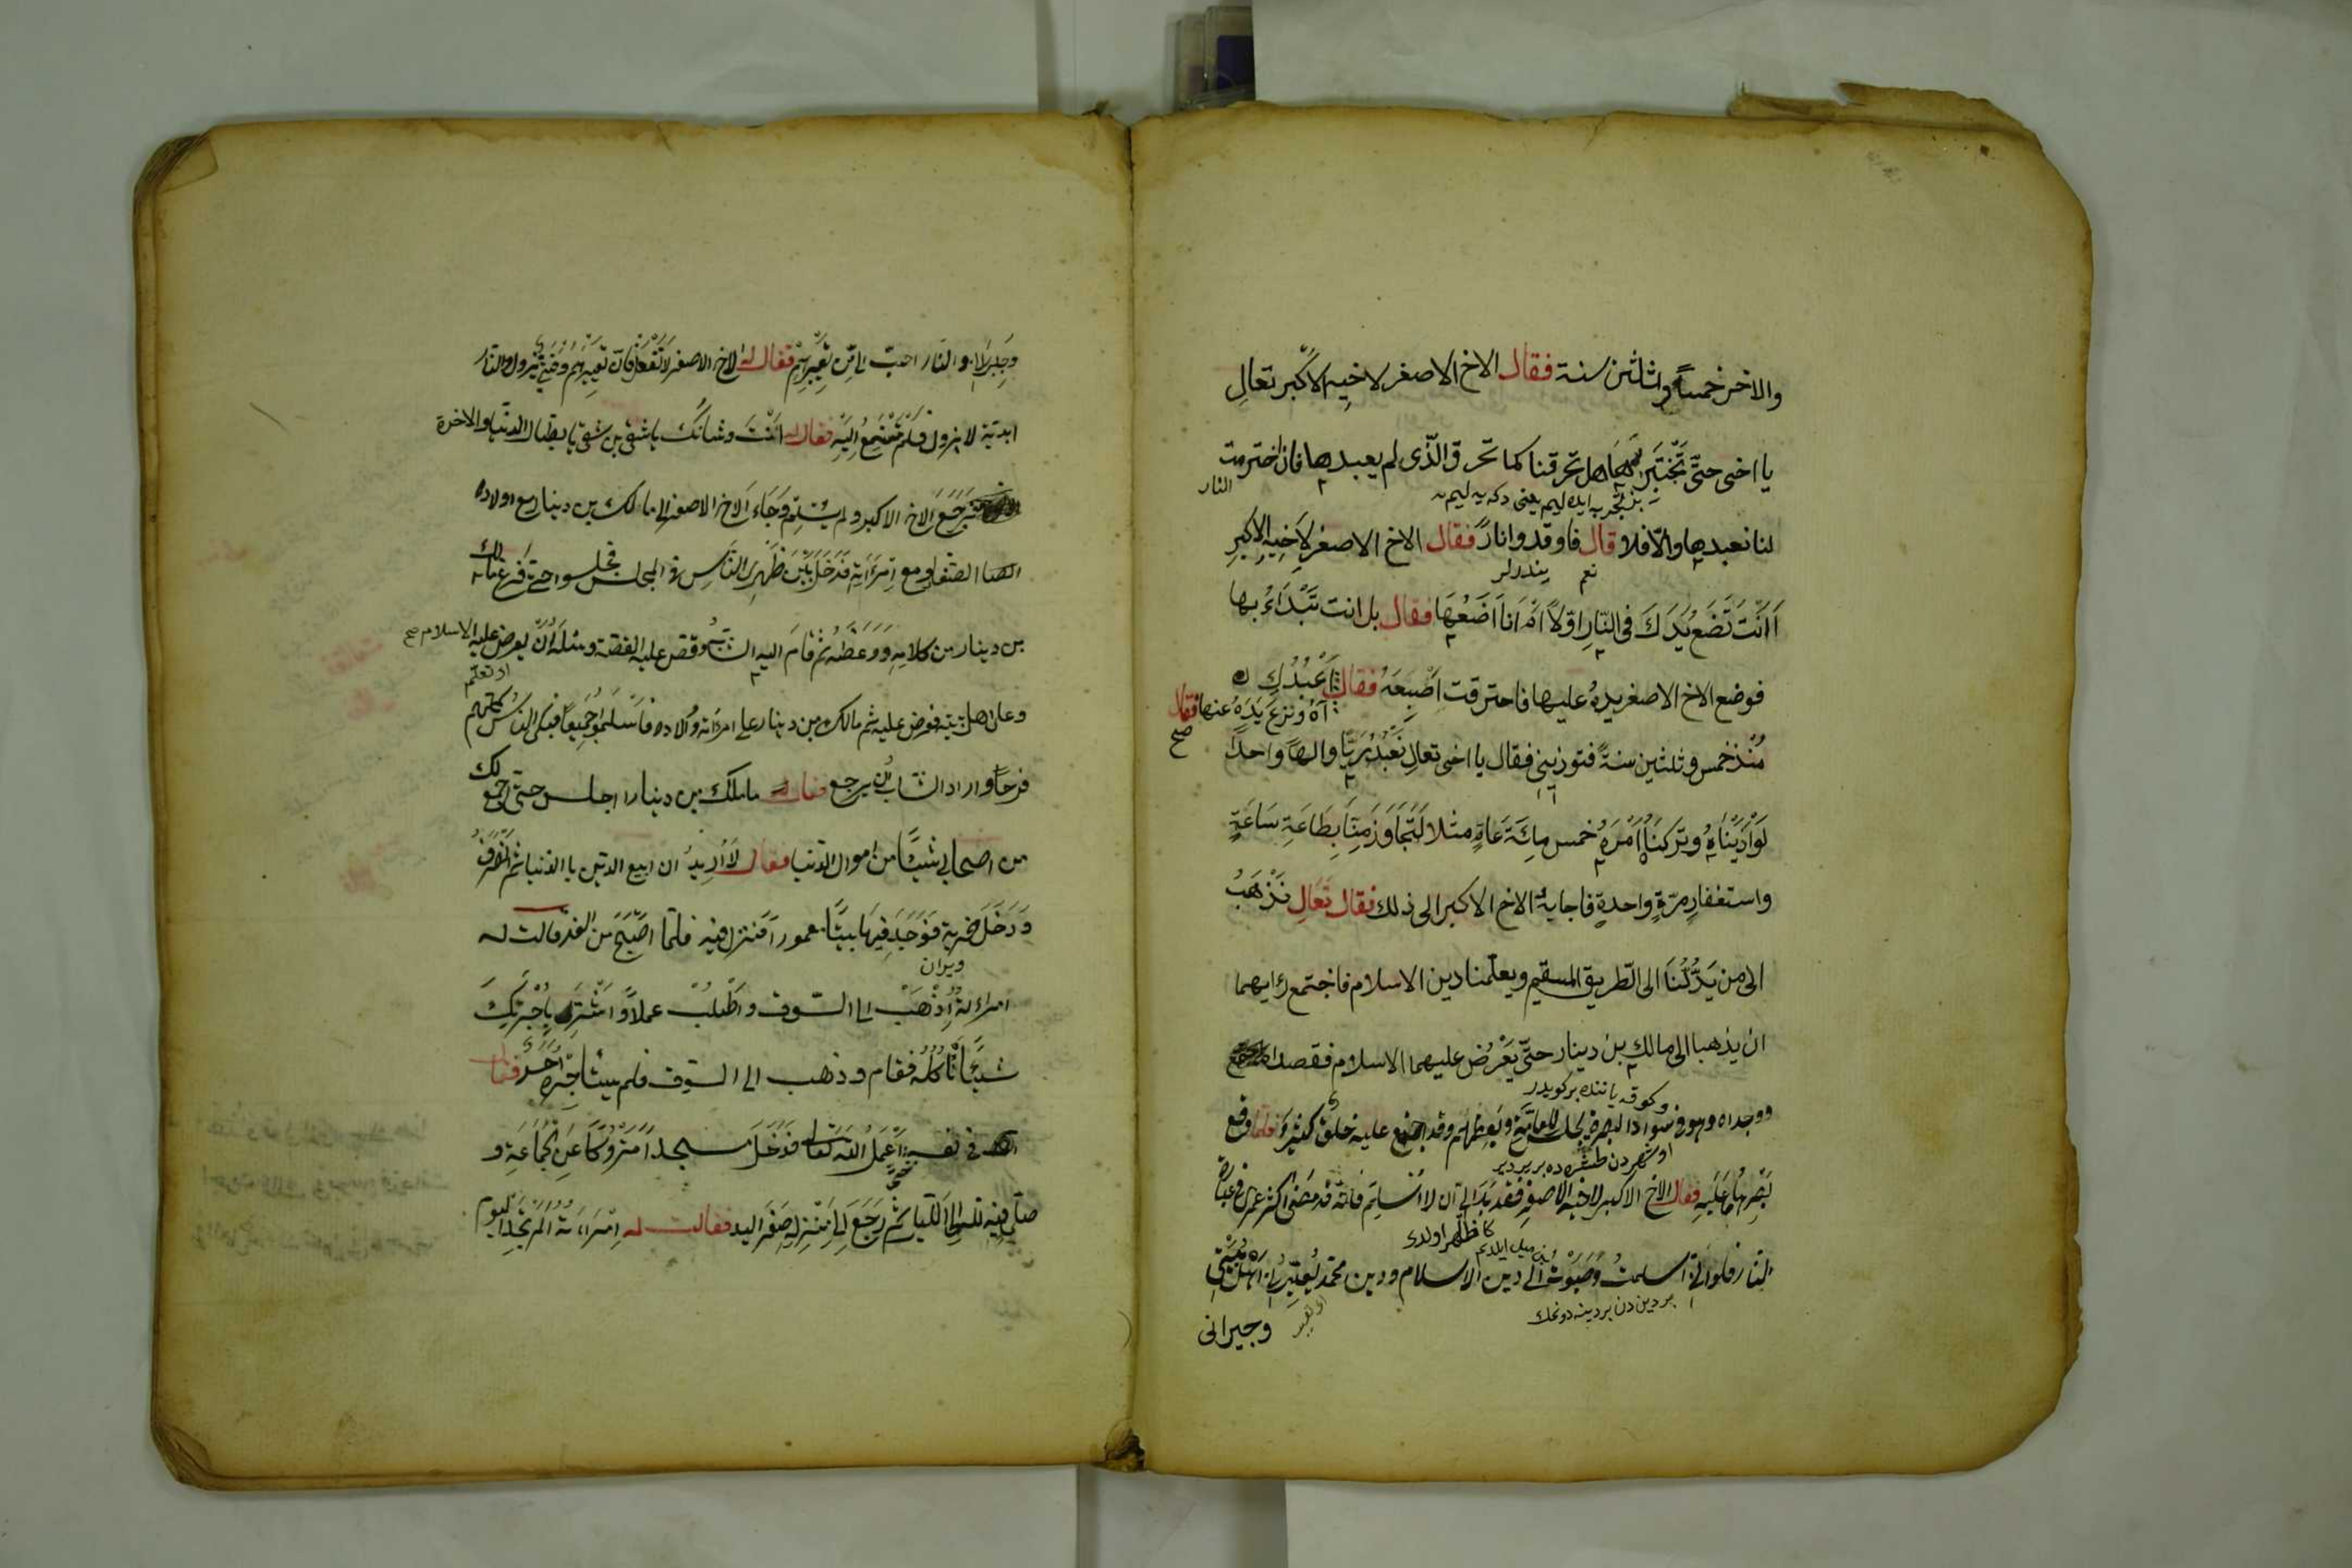 والاخر خمسًا وثلثين سنة فقال الاخ الاصغر لاخيه الاكبر تعال
يا اخى حتّى تجتبر هل تحرقنا كما تحرق الّذى لم يعبدها فان احترمت
النار
بز تجربه ايده ليم يعنى دكه يه ليم
لنا نعبدها والّا فلا قال فاوقدوا نارً فقال الاخ الاصغر لاخيه الاكبر
نعم
يندردلر
أانت تضع يدك فى النّار اوّلاً ام انا اضعها فقال بل انت تبداء بها
فوضع الاخ الاصغر يده عليها فاحترقت اصبعه فقال اعبدك
آه ونزع يده عنها فقال
صح
منذ خمس وثلثين سنةً فتوذينى فقال يا اخى تعال نعبد ربّا والهاً واحدًا
لو اذنبناه وتركنا امره خمس مائة عامٍ مثلا لتجاوز منّا بطاعة ساعةٍ
واستغفارٍ مرّةٍ واحدةٍ فاجابه الاخ الاكبر الى ذلك فقال تعال نذهب
الى من يدّلّنا الى الطّريق المسقيم ويعلّمنا دين الاسلام فاجتمع رايهما
ان يذهبا الى مالك بن دينار حتّى يعرض عليهما الاسلام فقصدا
ووجداه وهو فى سواد البصرة يجلس للعامّة ويعظهم وقد اجتمع عليه خلق كثير فلمّا وقع
بصرهما عليه فقال الاخ الاكبر لاخيه الاصغر فقد بدا لى ان لا اسلم فانّه قد مضى اكثر عمرى فى عبادة
كا ظاهر اولدى
النار فلو انّى اسلمت وصبوت الى دين الاسلام ودين محمّد يعيّرنى اهل بيتى
بر دين دن بر دينه دونمك
وجيرانى
وجيرانى والنّار احبّ الىّ من تعييرهم فقال له الاخ الاصغر لا تفعل فانّ تعييرهم وقتىّ يزول والنّار
ابديّة لا يزول فلم يستمع اليه فقال له انت وشانك يا شقى بن شقى يا بطّال الدنيا والاخرة
فرجع الاخ الاكبر ولم يسلم وجاء الاخ الاصغر الى مالك بن دينار مع اولاده
الصغار ومع امرأته فدخل بين ظهرى النّاس فى المجلس فجلسوا حتّى فرغ مالك
بن دينار من كلامه ووعظه ثمّ قام اليه الشّابّ وقصّ عليه القصّة وسئله ان يعرض عليه الاسلام صح
وعلى اهل بيته فعرض عليه ثم مالك بن دينار على امرأته واولاده فاسلموا جميعًا فبكى النّاس كلّهم
فرحًا واراد الشّاب ان يرجع فقال له مالك بن دينار اجلس حتّى اجمع لك
من اصحابى شيئًا من اموال الدّنيا فقال لا اريد ان ابيع الدّين با الدّنيا ثمّ انصرف
ودخل خربة فوجد فيها بيتًا معمورا فنزل فيه فلمّا اصبح من الغد قالت له
ويران
امراءته اذهب الى السّوق واطلب عملاً واشتر باجرتك
شيئًا ناكله فقام وذهب الى السّوق فلم يستأجره احد فقال
فى نفسه اعمل لله تعالى فدخل مسجدا متروكًا عن الجماعة و
صلّى فيه الى اللّيل ثم رجع الى منزله صفر اليد فقالت له امراءته الم تجد اليوم